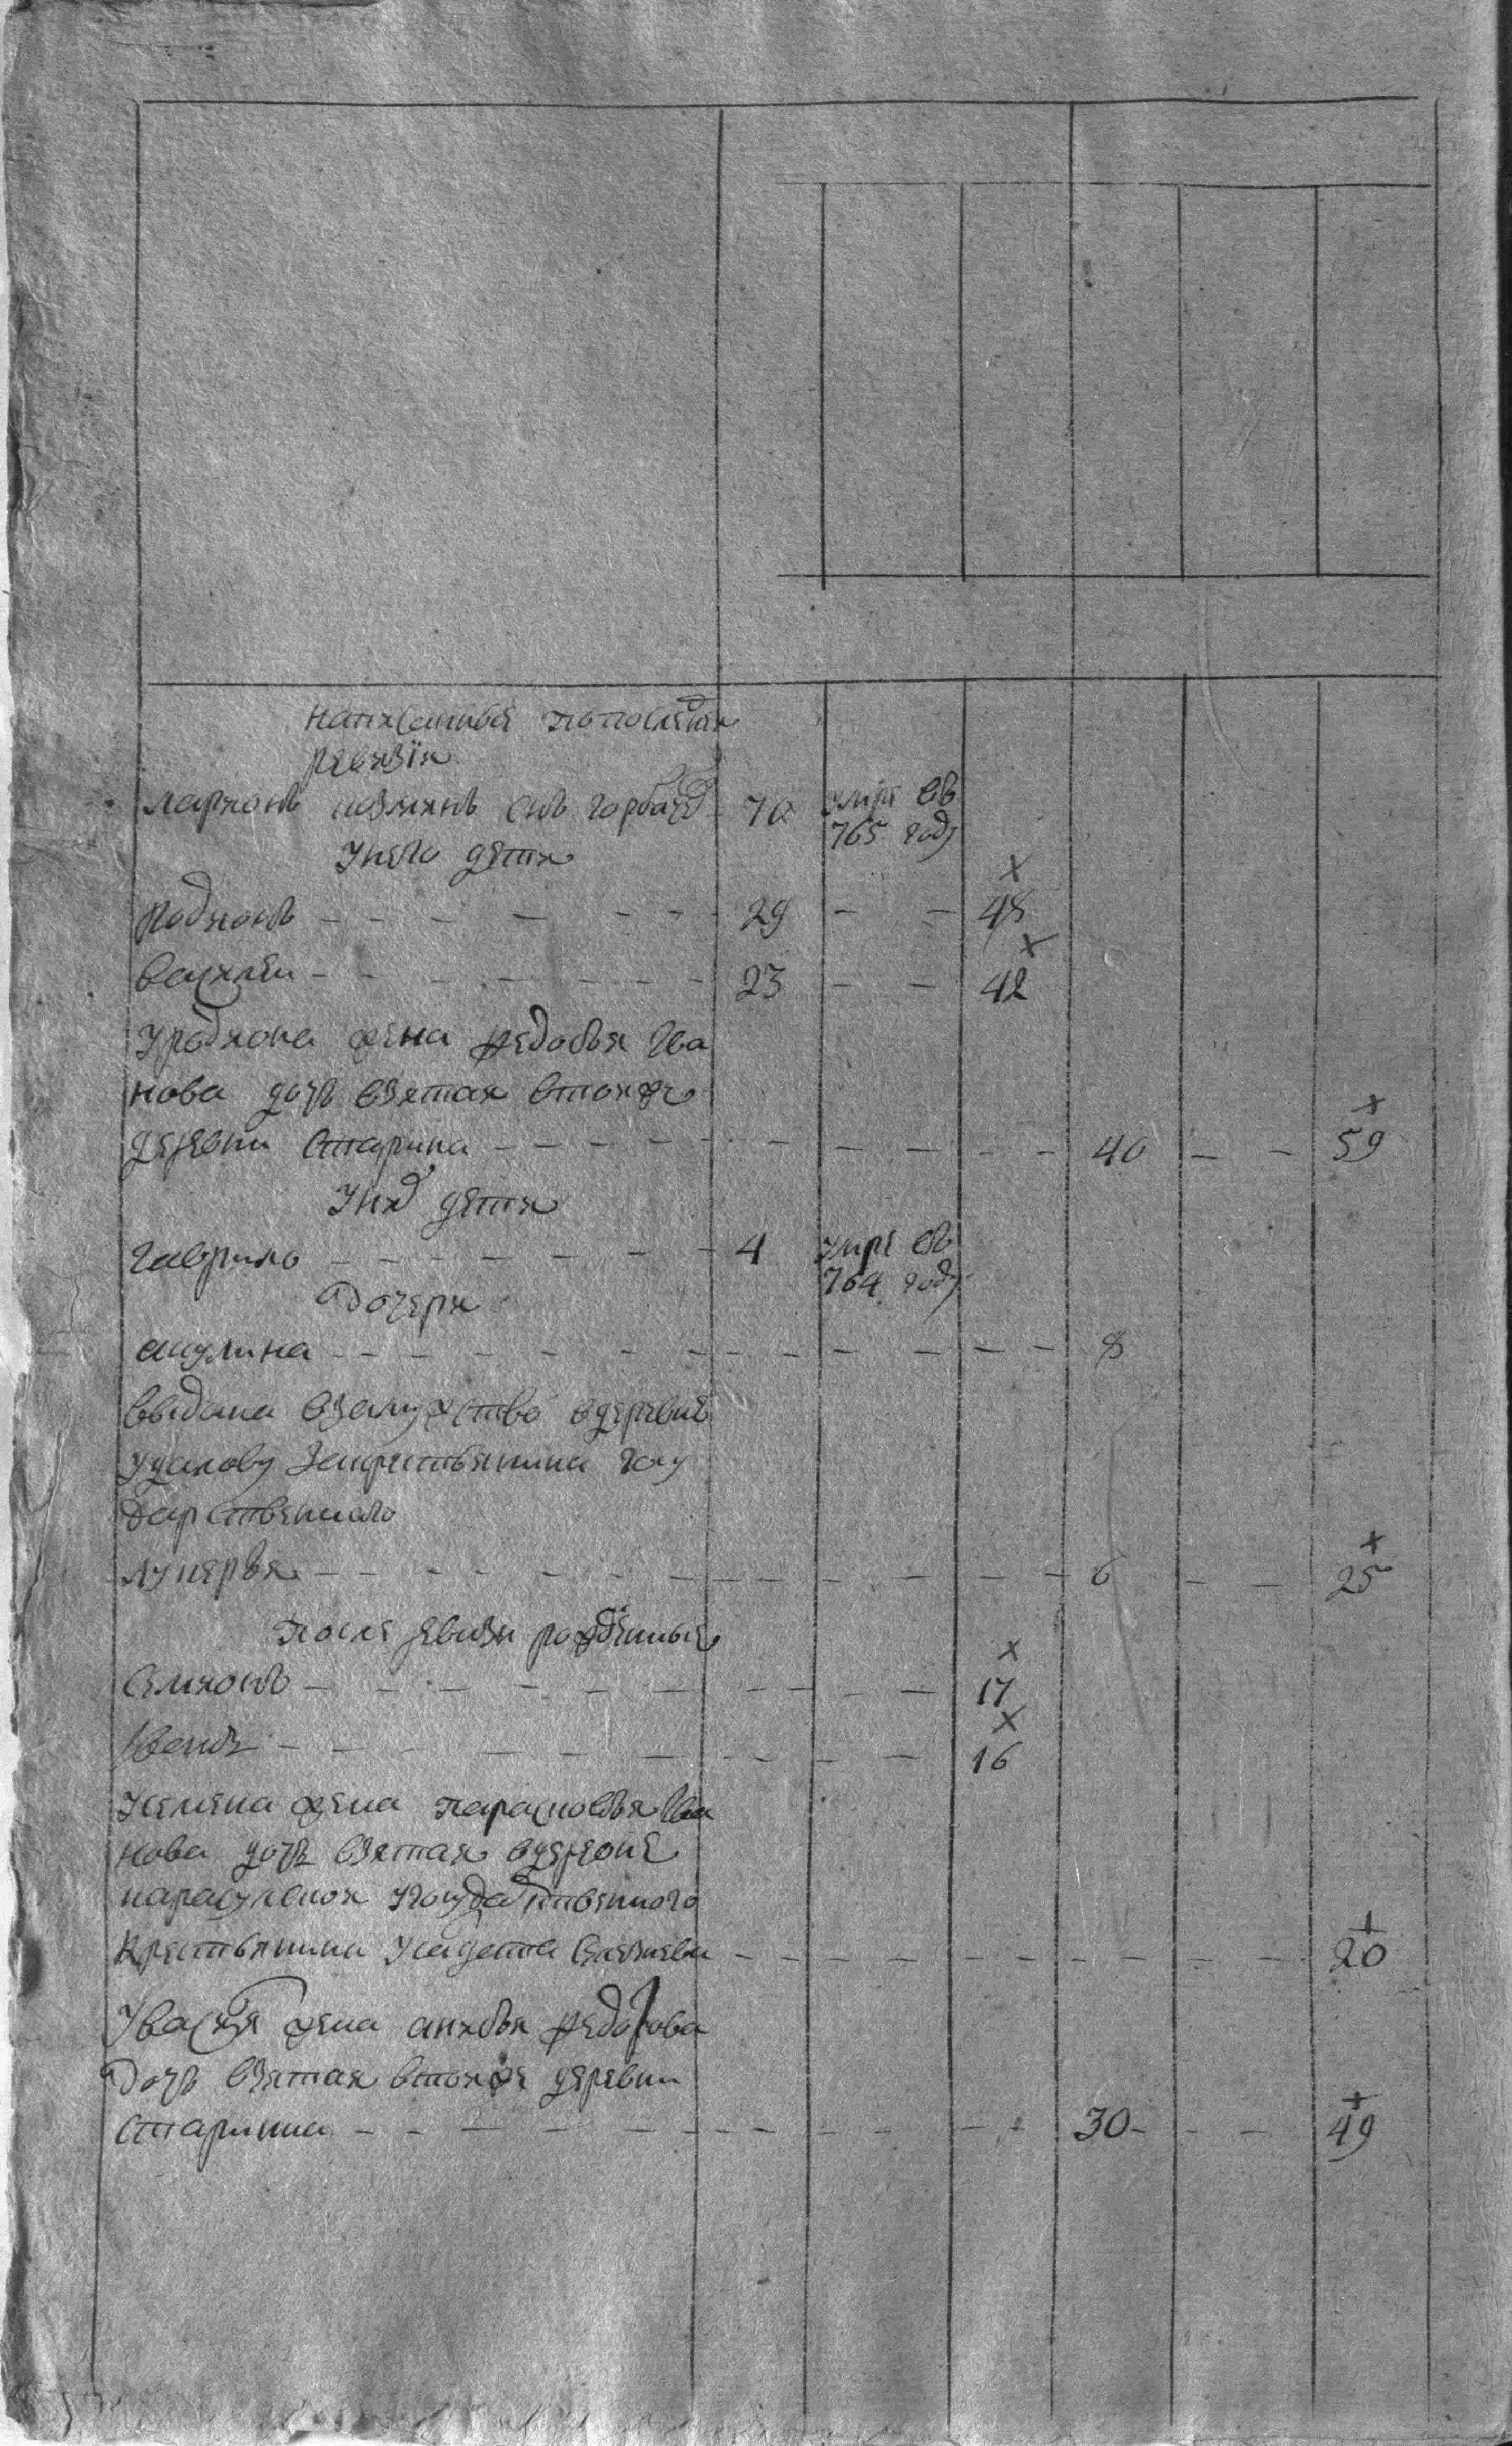 написанныя попоследней
ревизiи
ларионъ козминъ снъ горбачев 70 умре въ
765 году
Унего дети
х
Родионъ 29 48
х
василеи 23 42
Уродиона жена федосья Ива
нова дочь взятая втойже
х
деревни старина 40 59
Уних дети
гаврило 4 умре въ
764 году
дочери
акулина 8
выдана взамужство вдеревню
закрестьянина госу
дарственного
х
лукерья 6 25
после ревизи рожденныя
х
Симионъ 17
х
Иванъ 16
жена парасковья Ива
нова дочь взятая вдеревне
государственного
+
крестьянина 20
Увасилья жена федорова
дочь взятая втойже деревни
+
старинна 30 49